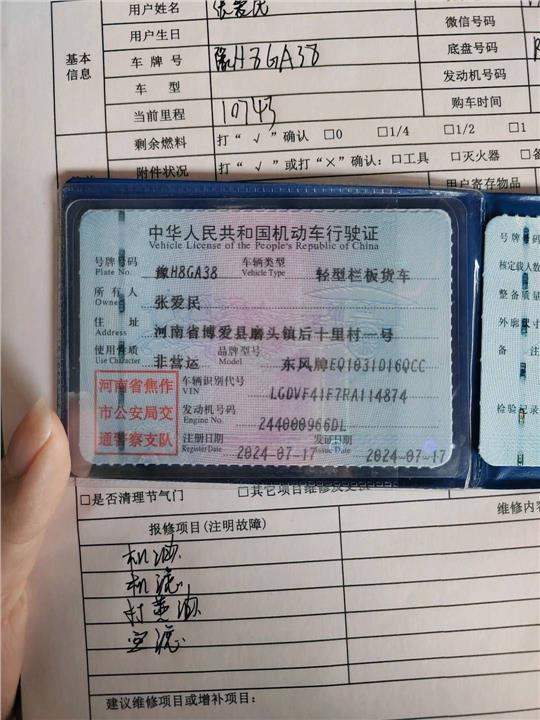 用户姓名 张爱民
微信号码
用户生日
基本信息
车牌号 豫H8GA38
底盘号码
发动机号码
车型
当前里程 10743
购车时间
剩余燃料 打“√”确认 □0 □1/4 □1/2 □1
附件状况 打“√”或打“×”确认：□工具 □灭火器
用户寄存物品
中华人民共和国机动车行驶证
Vehicle License of the People's Republic of China
号牌号码 豫H8GA38 车辆类型 轻型栏板货车
Plate No. Vehicle Type
所有人 张爱民
Owner
住址 河南省博爱县磨头镇后十里村一号
Address
使用性质 非营运 品牌型号 东风牌EQ1031D16QCC
Use Character Model
河南省焦作
市公安局交
通警察支队
车辆识别代号 LGDVF41F7RA114874
VIN
发动机号码 244000966DL
Engine No.
注册日期 2024-07-17 发证日期 2024-07-17
Register Date Issue Date
号牌号码
核定载人数
整备质量
外廓尺寸
备注
检验记录
□是否清理节气门 □其它项目维修及更换
报修项目(注明故障)
维修内容
机油
机滤
打黄油
空滤
建议维修项目或增补项目：